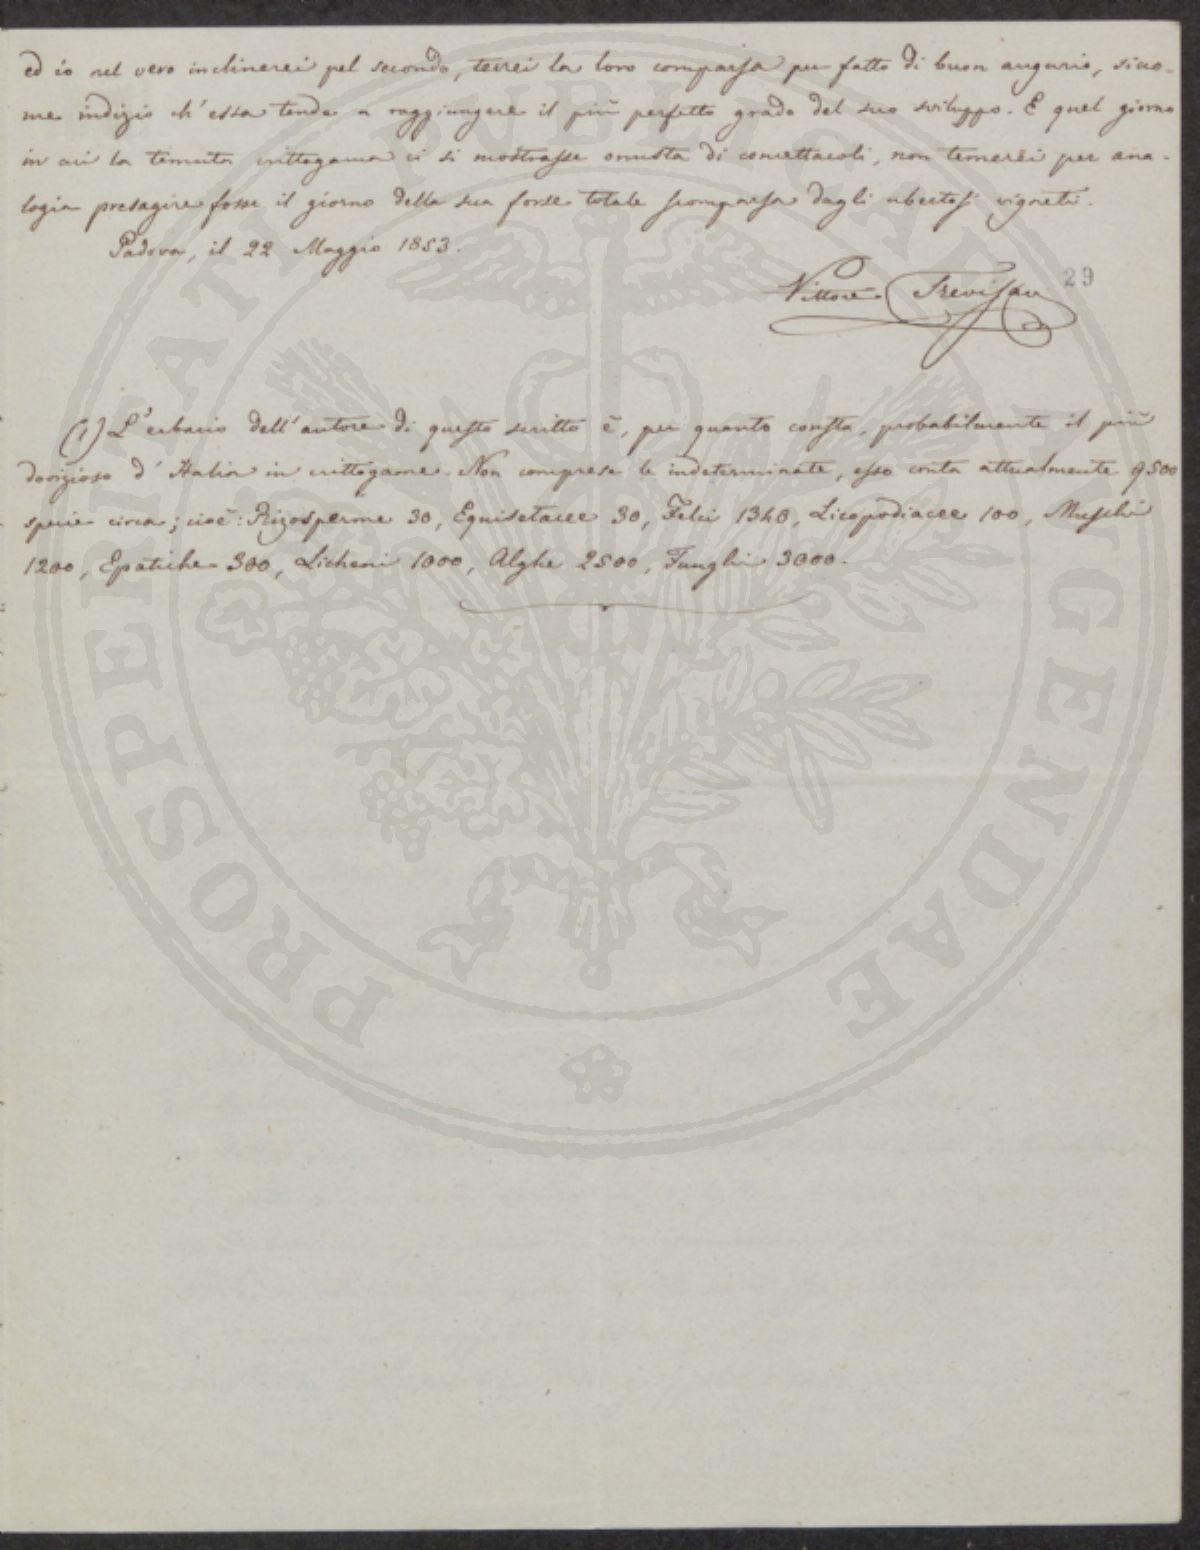 ed io nel vero inclinerei pel secondo, terrei la loro comparsa per fatto di buon augurio, sicco-
me indizio ch'essa tende a raggiungere il più perfetto grado del suo sviluppo. E quel giorno
in cui la temuta crittogama ci si mostrasse onusta di concettacoli, non temerei per ana-
logia presagire fosse il giorno della sua forse totale scomparsa dagli ubertosi vigneti.
Padova, il 22 Maggio 1853.
Vittore Trevisan
29
(1) L'erbario dell'autore di questo scritto è, per quanto consta, probabilmente il più
dovizioso d'Italia in crittogame. Non comprese le indeterminate, esso conta attualmente 9500
specie circa; cioè: Rizosperme 30, Equisetacee 30, Felci 1340, Licopodiacee 100, Muschi
1200, Epatiche 300, Licheni 1000, Alghe 2500, Funghi 3000.
PROSPERITATI PUBLICAE AUGENDAE